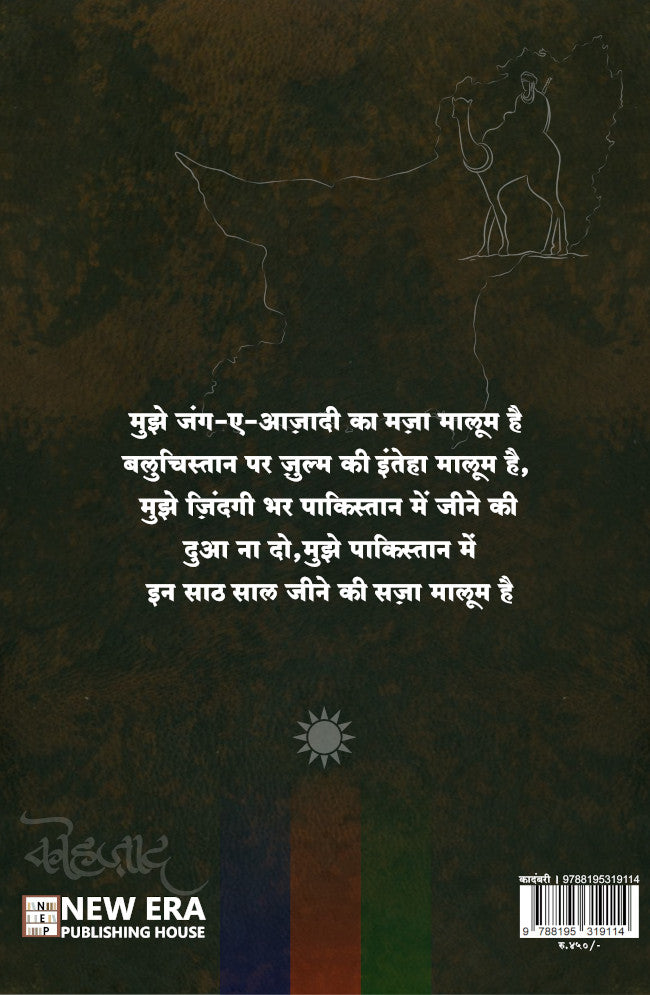 मुझे जंग-ए-आज़ादी का मज़ा मालूम है
बलुचिस्तान पर ज़ुल्म की इंतेहा मालूम है,
मुझे ज़िंदगी भर पाकिस्तान में जीने की
दुआ ना दो,मुझे पाकिस्तान में
इन साठ साल जीने की सज़ा मालूम है
कोहज़ाद
NEP
NEW ERA
PUBLISHING HOUSE
कादंबरी । 9788195319114
9 788195 319114
रु.४५०/-